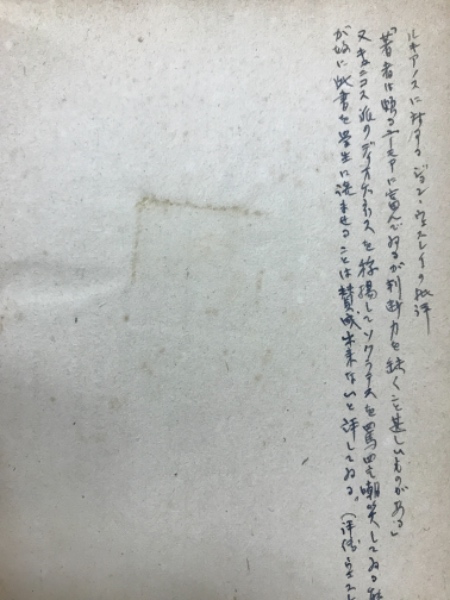 ルキアノスに対するジョン・ウェスレイの批評
「著者は頗るユーモアに富んでゐるが判断力を缺くこと甚しいものがある」
又キニコス派のディオゲネスを称揚してソクラテスを罵り嘲笑してゐる
が故に此書を学生に読ませることは賛成出来ないと評してゐる。(評伝ウエスレ